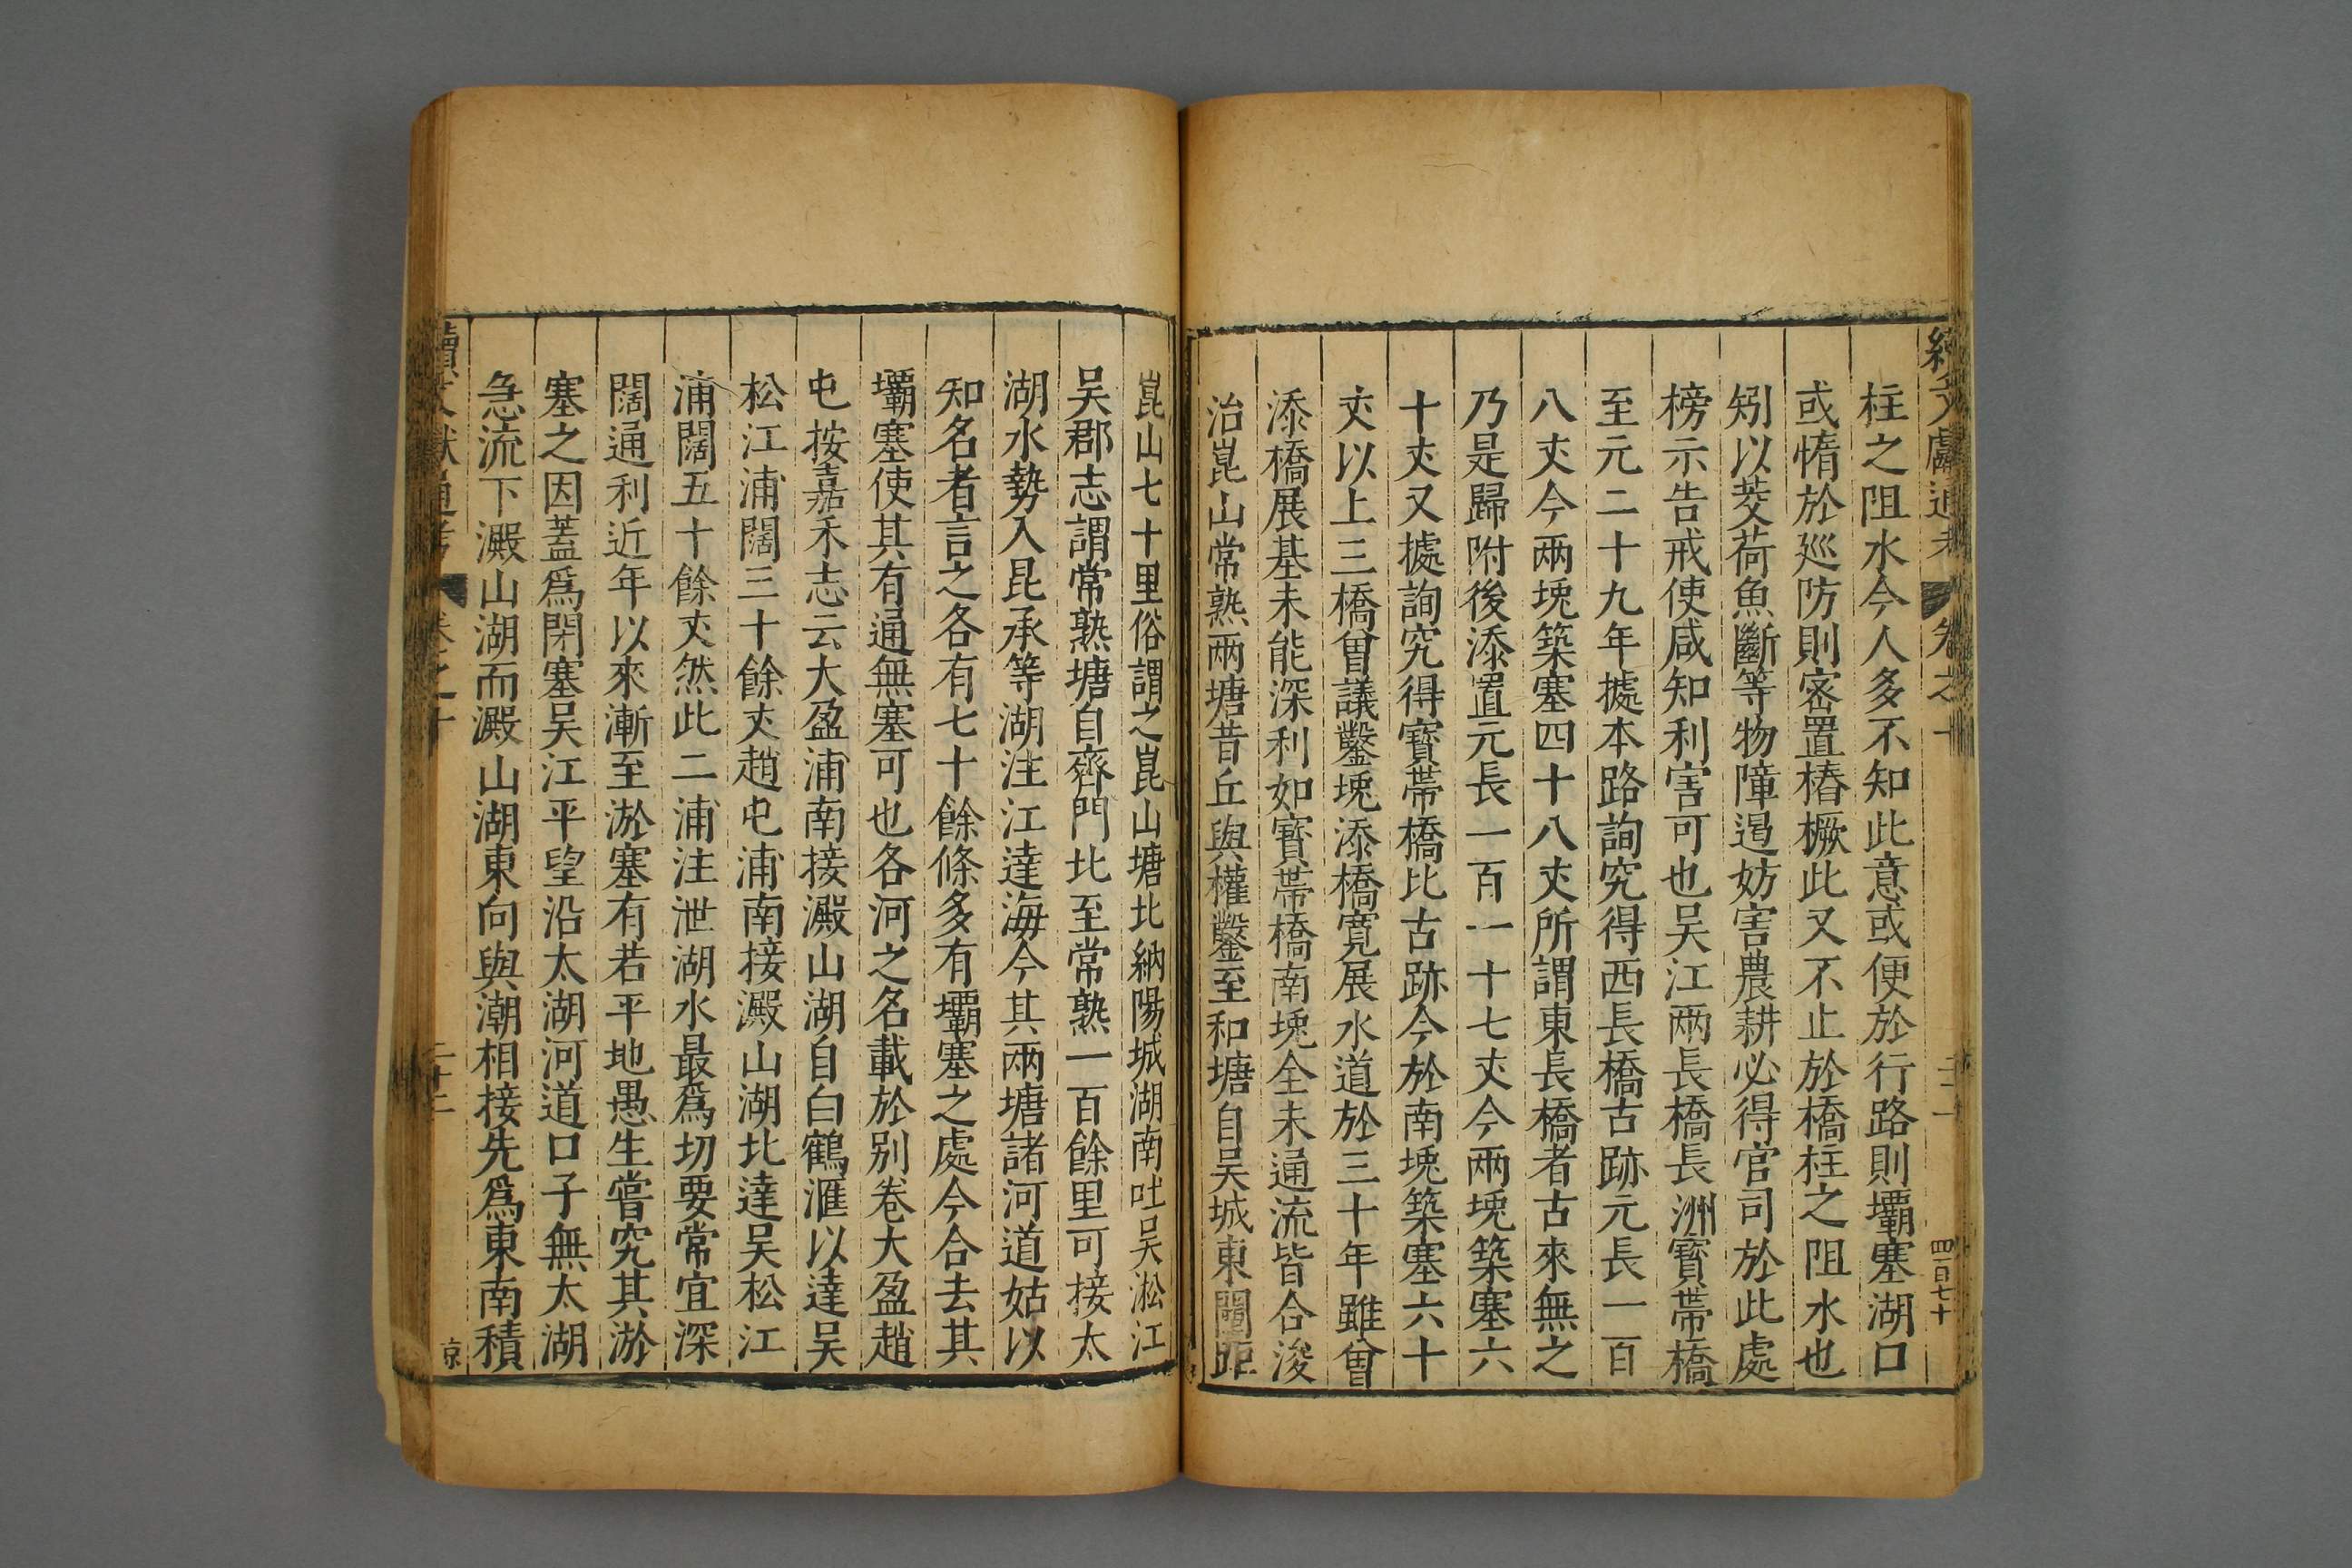 柱之阻水今人多不知此意或便於行路則壩塞湖口
或惰於廵防則宻置樁橛此又不止於橋柱之阻水也
矧以茭荷魚斷等物障遏妨害農耕必得官司於此處
榜示告戒使咸知利害可也吴江兩長橋長洲寳帶橋
至元二十九年㨿本路詢究得西長橋古跡元長一百
八丈今兩堍築塞四十八丈所謂東長橋者古來無之
乃是歸附後添置元長一百一十七丈今兩堍築塞六
十丈又㨿詢究得寳帶橋比古跡今於南堍築塞六十
丈以上三橋曾議鑿堍添橋寛展水道於三十年雖曾
添橋展基未能深利如寳帶橋南堍全未通流皆合浚
治崑山常熟兩塘昔丘與權鑿至和塘自吴城東闉距
崑山七十里俗謂之崑山塘北納陽城湖南吐吴淞江
吴郡志謂常熟塘自齊門北至常熟一百餘里可接太
湖水勢入昆承等湖注江達海今其兩塘諸河道姑以
知名者言之各有七十餘條多有壩塞之處今合去其
壩塞使其有通無塞可也各河之名載於别卷大盈趙
屯按嘉禾志云大盈浦南接澱山湖自白鶴滙以達吴
松江浦闊三十餘丈趙屯浦南接澱山湖北達吴松江
浦闊五十餘丈然此二浦注泄湖水最爲切要常宜深
闊通利近年以來漸至淤塞有若平地愚生嘗究其淤
塞之因蓋爲閉塞吴江平望沿太湖河道口子無太湖
急流下澱山湖而澱山湖東向與潮相接先爲東南積